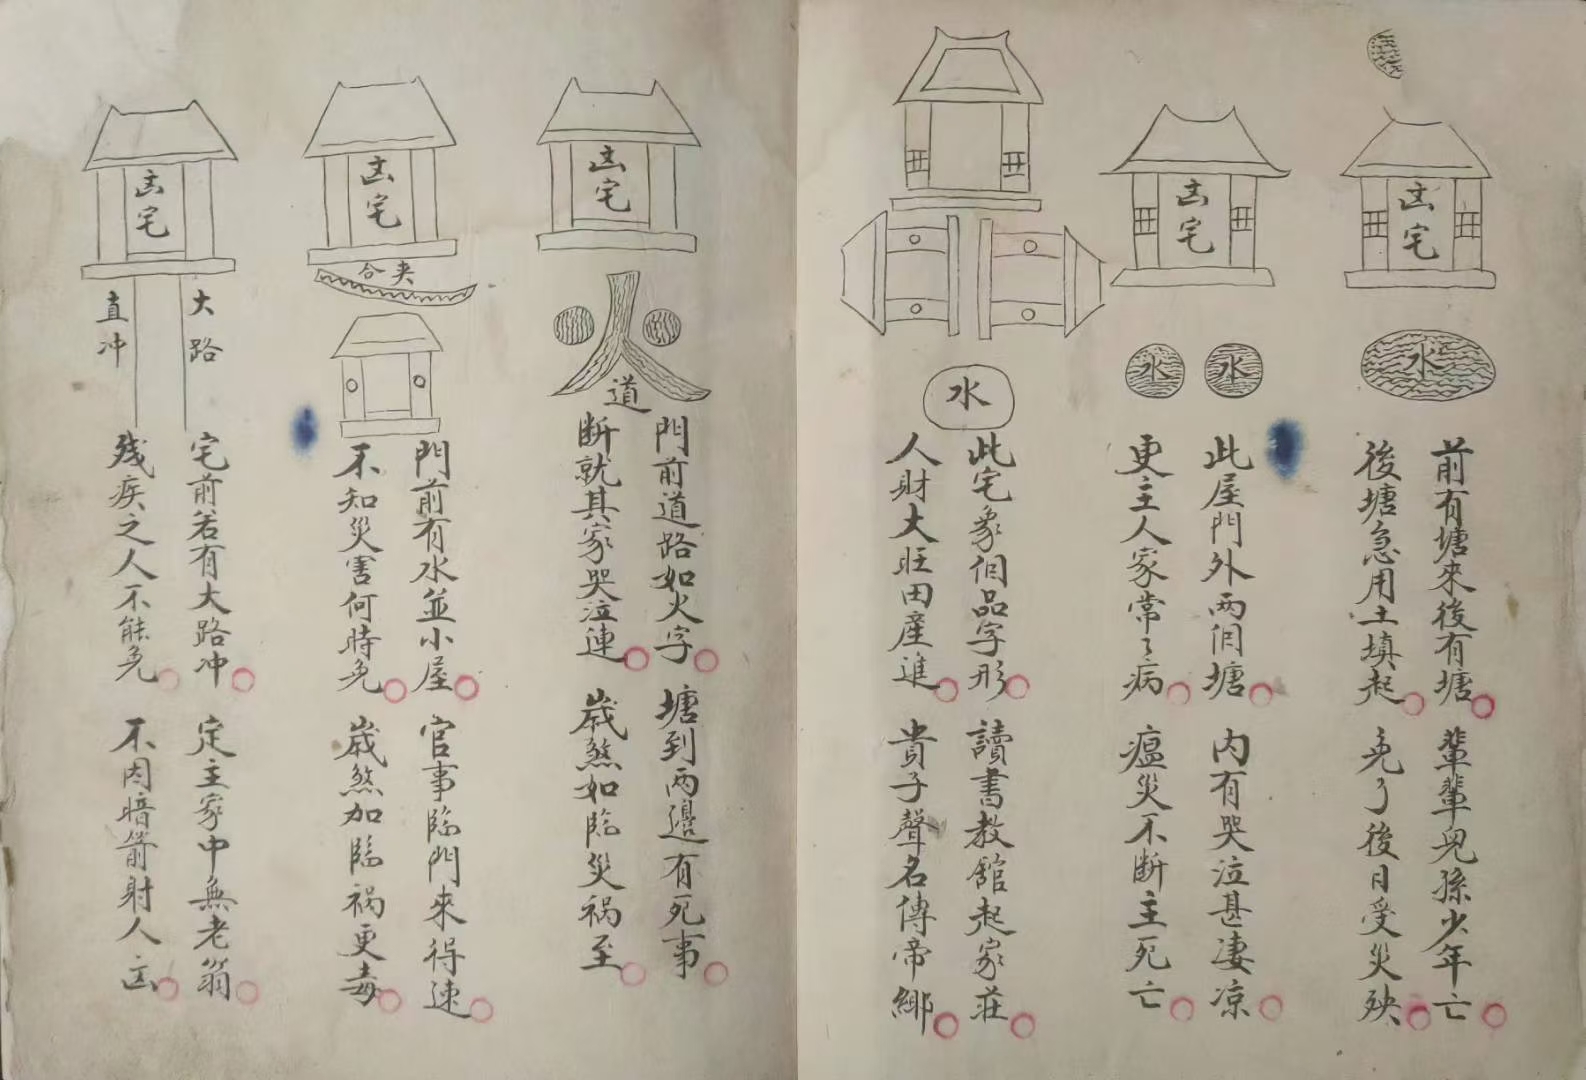 凶宅
水
前有塘來後有塘
輩輩兒孫少年亡
後塘急用土填起
免了後日受災殃
凶宅
水
水
此屋門外兩個塘
内有哭泣甚凄凉
更主人家常々病
瘟災不断主死亡
水
此宅象個品字形
讀書教館起家莊
人財大旺田産進
貴子聲名傳帝鄉
凶宅
火
道
門前道路如火字
塘到两邉有死事
断就其家哭泣連
歲煞如臨災禍至
凶宅
夹合
門前有水並小屋
官事臨門來得速
不知災害何時免
歲煞加臨祸更毒
凶宅
大路
直冲
宅前若有大路冲
定主家中無老翁
残疾之人不能免
不因暗箭射人凶